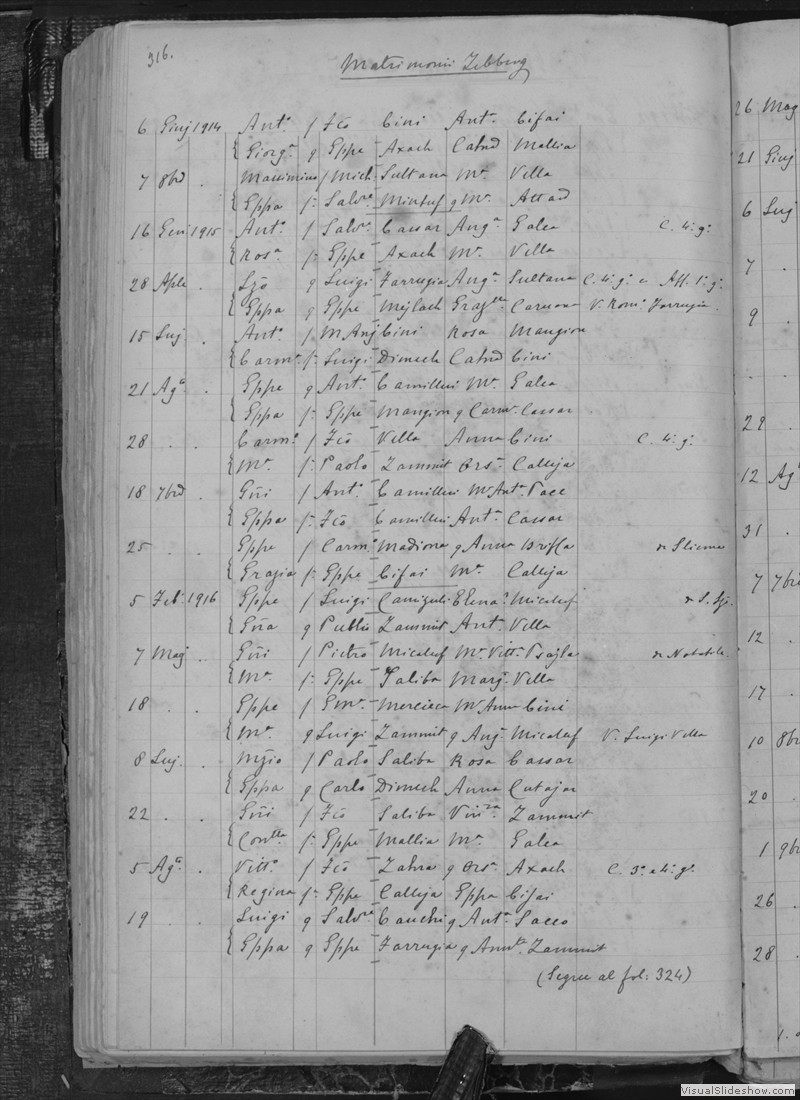 316.
Matrimonii Zebbug
6 Giuj 1914 Ant.o f Fco Cini Ant.a Cifai
{ Giorg.a q Eppe Axach Catnd Mallia
7 8bd . Massimino f Mich. Sultana M.a Vella
{ Eppa f: Salv.re Mintuf q M.a Attad
16 Gen 1915 Ant.o f Salv.re Cassar Ang.a Galea C. 4: g:
{ Ros.a f: Eppe Axach M.a Vella
28 Aple . Sjo q Luigi Farrugia Ang.a Sultana C. 4: g: e Aff. 1: g:
{ Eppa q Eppe Mejlach Caruana V. Farrugia
15 Luj . Ant.o f M Anj Cini Rosa Mangion
{ Carm.a f: Luigi Dimech Catnd Cini
21 Ag.o . Eppe q Ant.o Camilleri M.a Galea
{ Eppa f: Eppe Mangion q Carm.a Cassar
28 . . Carm.o f Fco Vella Anna Cini C. 4: g:
{ M.a f: Paolo Zammit Ors.a Calleja
18 7bd . Gni f Ant.o Camilleri M.a Ant.a Pace
{ Eppa f: Fco Camilleri Ant.a Cassar
25 . . Eppe f Carm.o Madiona q Anna Briffa da Sliema
{ Grazia f: Eppe Cifai M.a Calleja
5 Feb. 1916 Eppe f Luigi Camizuli Elena Micalef
{ Gna q Publio Zammit Ant.a Vella
7 Maj . Gni f Pietro Micalef M.a Vitt.a Psajla da Notabile
{ M.a f: Eppe Saliba Marj. Vella
18 . . Eppe f Em.o Mercieca M.a Anna Cini
{ M.a q Luigi Zammit q Anj. Micalef V. Luigi Vella
8 Luj. . Nzio f Paolo Saliba Rosa Cassar
{ Eppa q Carlo Dimech Anna Cutajar
22 . . Gni f Fco Saliba Zammit
{ f: Eppe Mallia M.a Galea
5 Ag.o . Vitt.o f Fco Zahra q Ors.a Axach C. 3: e 4: g:
{ Regina f: Eppe Calleja Eppa Cifai
19 . . Luigi q Salv.re Cauchi q Ant.a Sacco
{ Eppa q Eppe Farrugia q Zammit
(Segue al fol: 324)
26 Mag
21 Giuj
6 Luj
7 .
9 .
. .
29 .
12 Ag.o
31 .
7 7br
12 .
17 .
10 8br
20 .
1 9br
26 .
28 .
VisualSlideshow.com